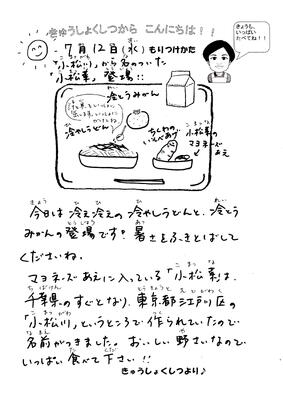 きゅうしょくしつから こんにちは！！
きょうも、
いっぱい
たべてね！！
7月12日(水) もりつけかた
「小松川」から名のついた
「小松菜」登場！！
冷とうみかん
冷やしうどん
ちくわの
いそべあげ
小松菜の
マヨネーズ
あえ
今日は冷え冷えの冷やしうどんと、冷とう
みかんの登場です！暑さをふきとばして
くださいね。
マヨネーズあえに入っている「小松菜」は、
千葉県のすぐとなり、東京都江戸川区の
「小松川」というところで作られていたので
名前がつきました。おいしい野さいなので
いっぱい食べて下さい！！
きゅうしょくしつより♪